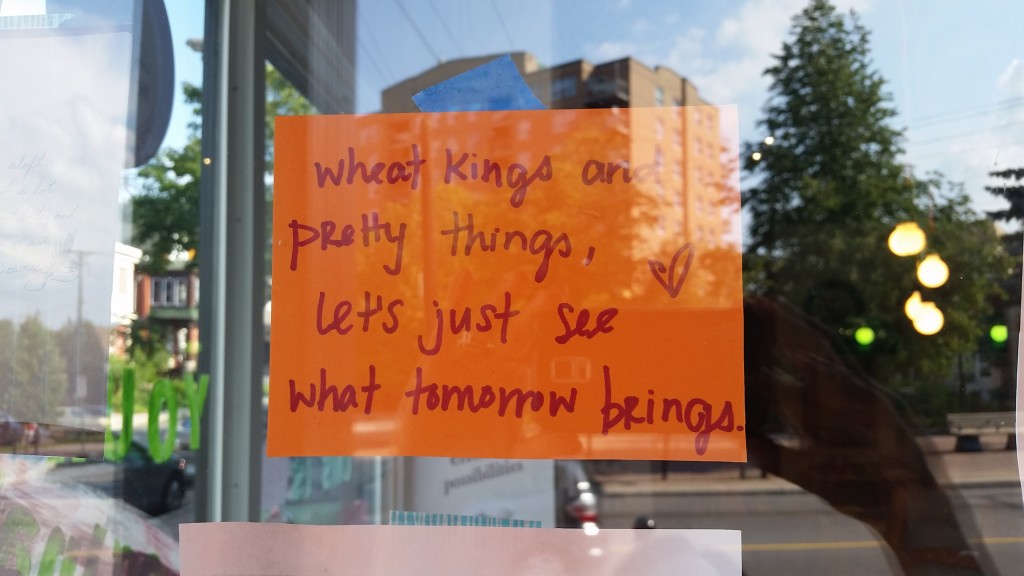 wheat kings and
pretty things,
let's just see
what tomorrow brings.
JOY
possibilities